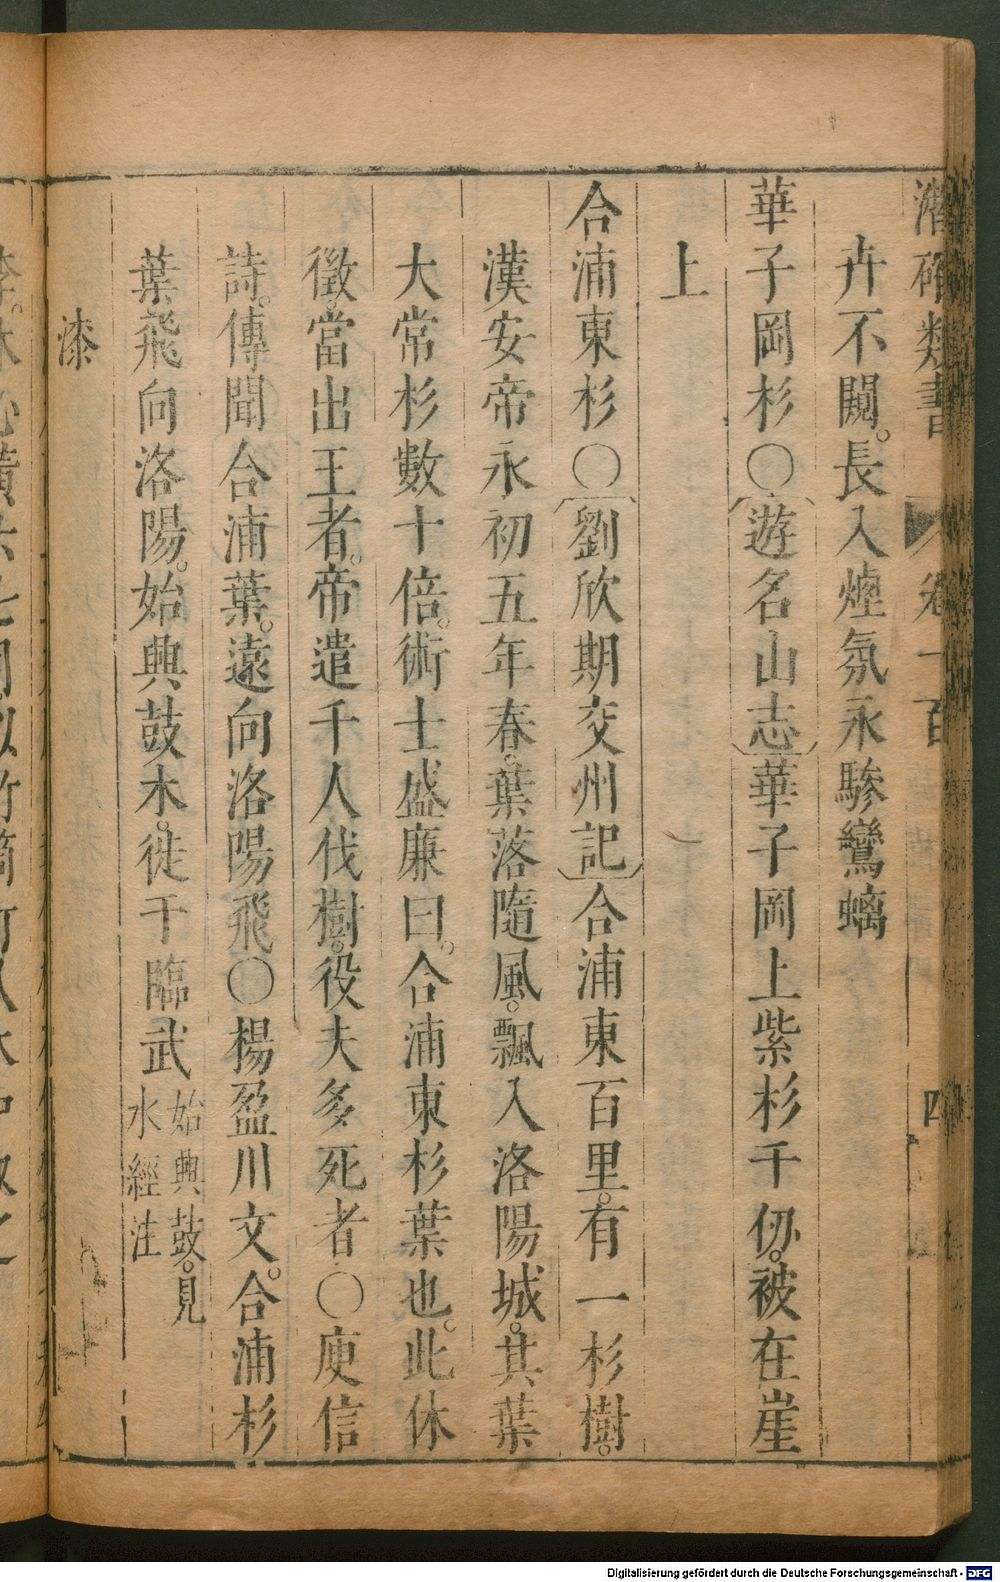 潛確類書 卷一百 四
卉不闕。長入煙氛永驂鸞螭
華子岡杉○〔遊名山志〕華子岡上紫杉千仞。被在崖
上
合浦東杉○〔劉欣期交州記〕合浦東百里。有一杉樹。
漢安帝永初五年春。葉落隨風。飄入洛陽城。其葉
大常杉數十倍。術士盛廉曰。合浦東杉葉也。此休
徵。當出王者。帝遣千人伐樹。役夫多死者○庾信
詩。傳聞合浦葉。遠向洛陽飛○楊盈川文。合浦杉
葉飛向洛陽。始興鼓木。徙于臨武始興鼓。見
水經注
漆
Digitalisierung gefördert durch die Deutsche Forschungsgemeinschaft - DFG